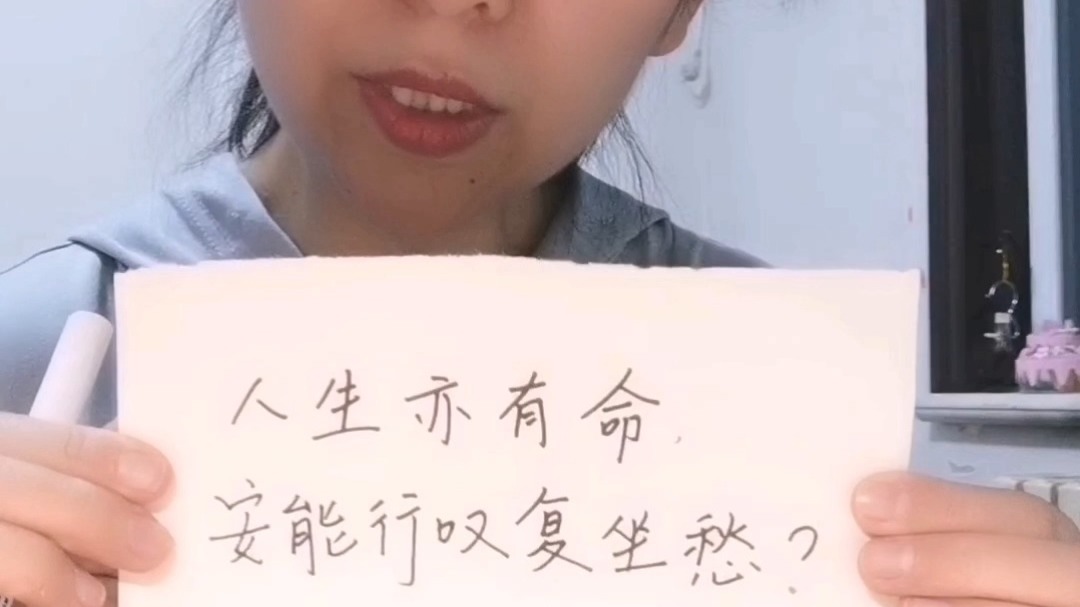 人生亦有命,
安能行叹复坐愁?